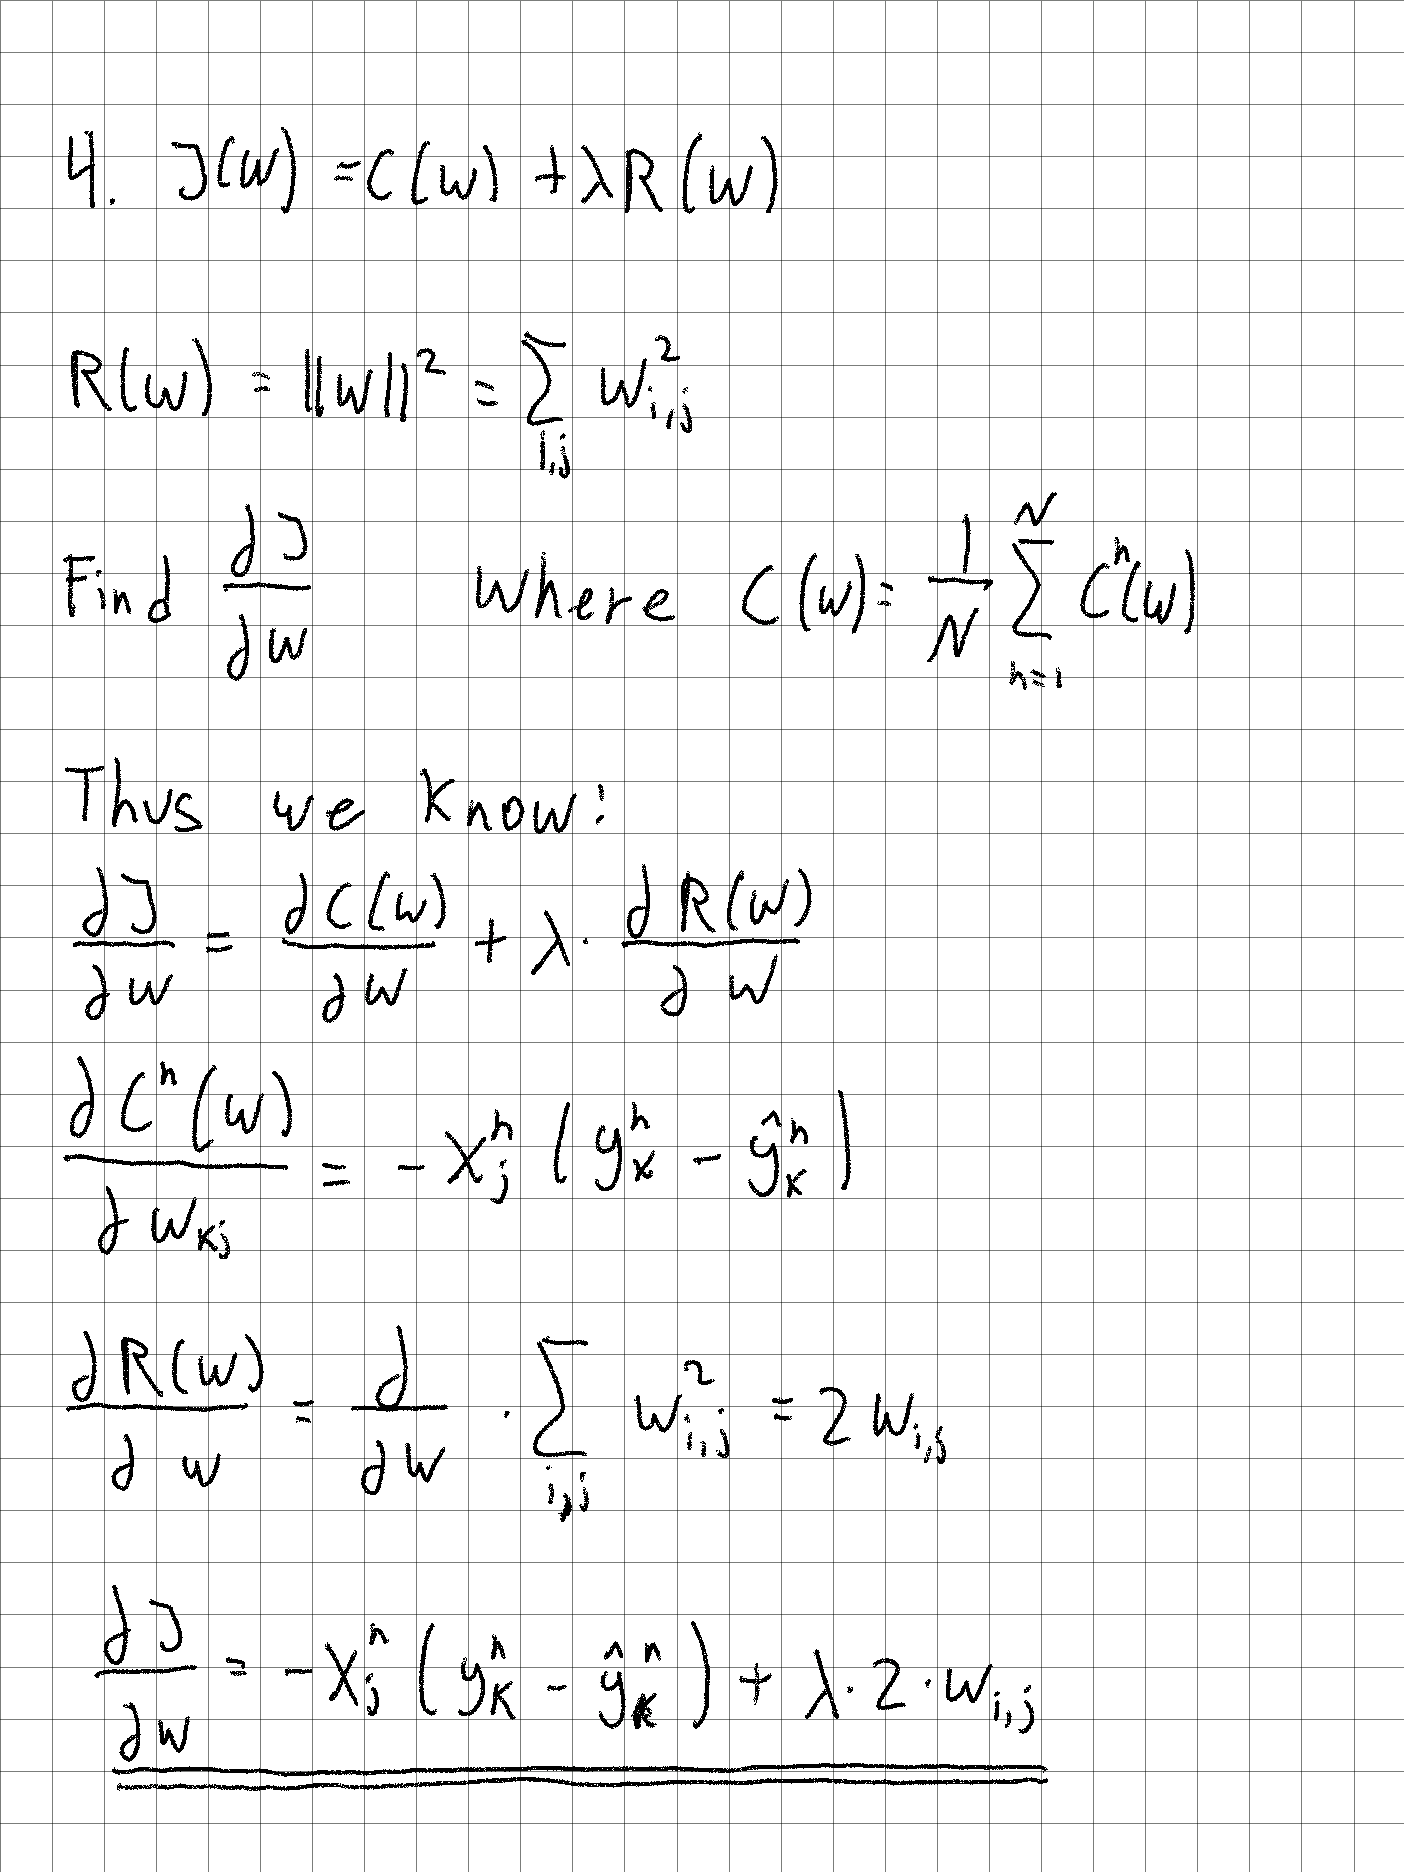 4. J(w) = C(w) + λR(w)
R(w) = ||w||² = ∑_{i,j} w_{i,j}²
Find ∂J/∂w where C(w) = 1/N ∑_{n=1}^{N} Cⁿ(w)
Thus we know:
∂J/∂w = ∂C(w)/∂w + λ · ∂R(w)/∂w
∂Cⁿ(w)/∂w_{kj} = -x_j^n (y_k^n - ŷ_k^n)
∂R(w)/∂w = ∂/∂w · ∑_{i,j} w_{i,j}² = 2w_{i,j}
∂J/∂w = -x_j^n (y_k^n - ŷ_k^n) + λ · 2 · w_{i,j}